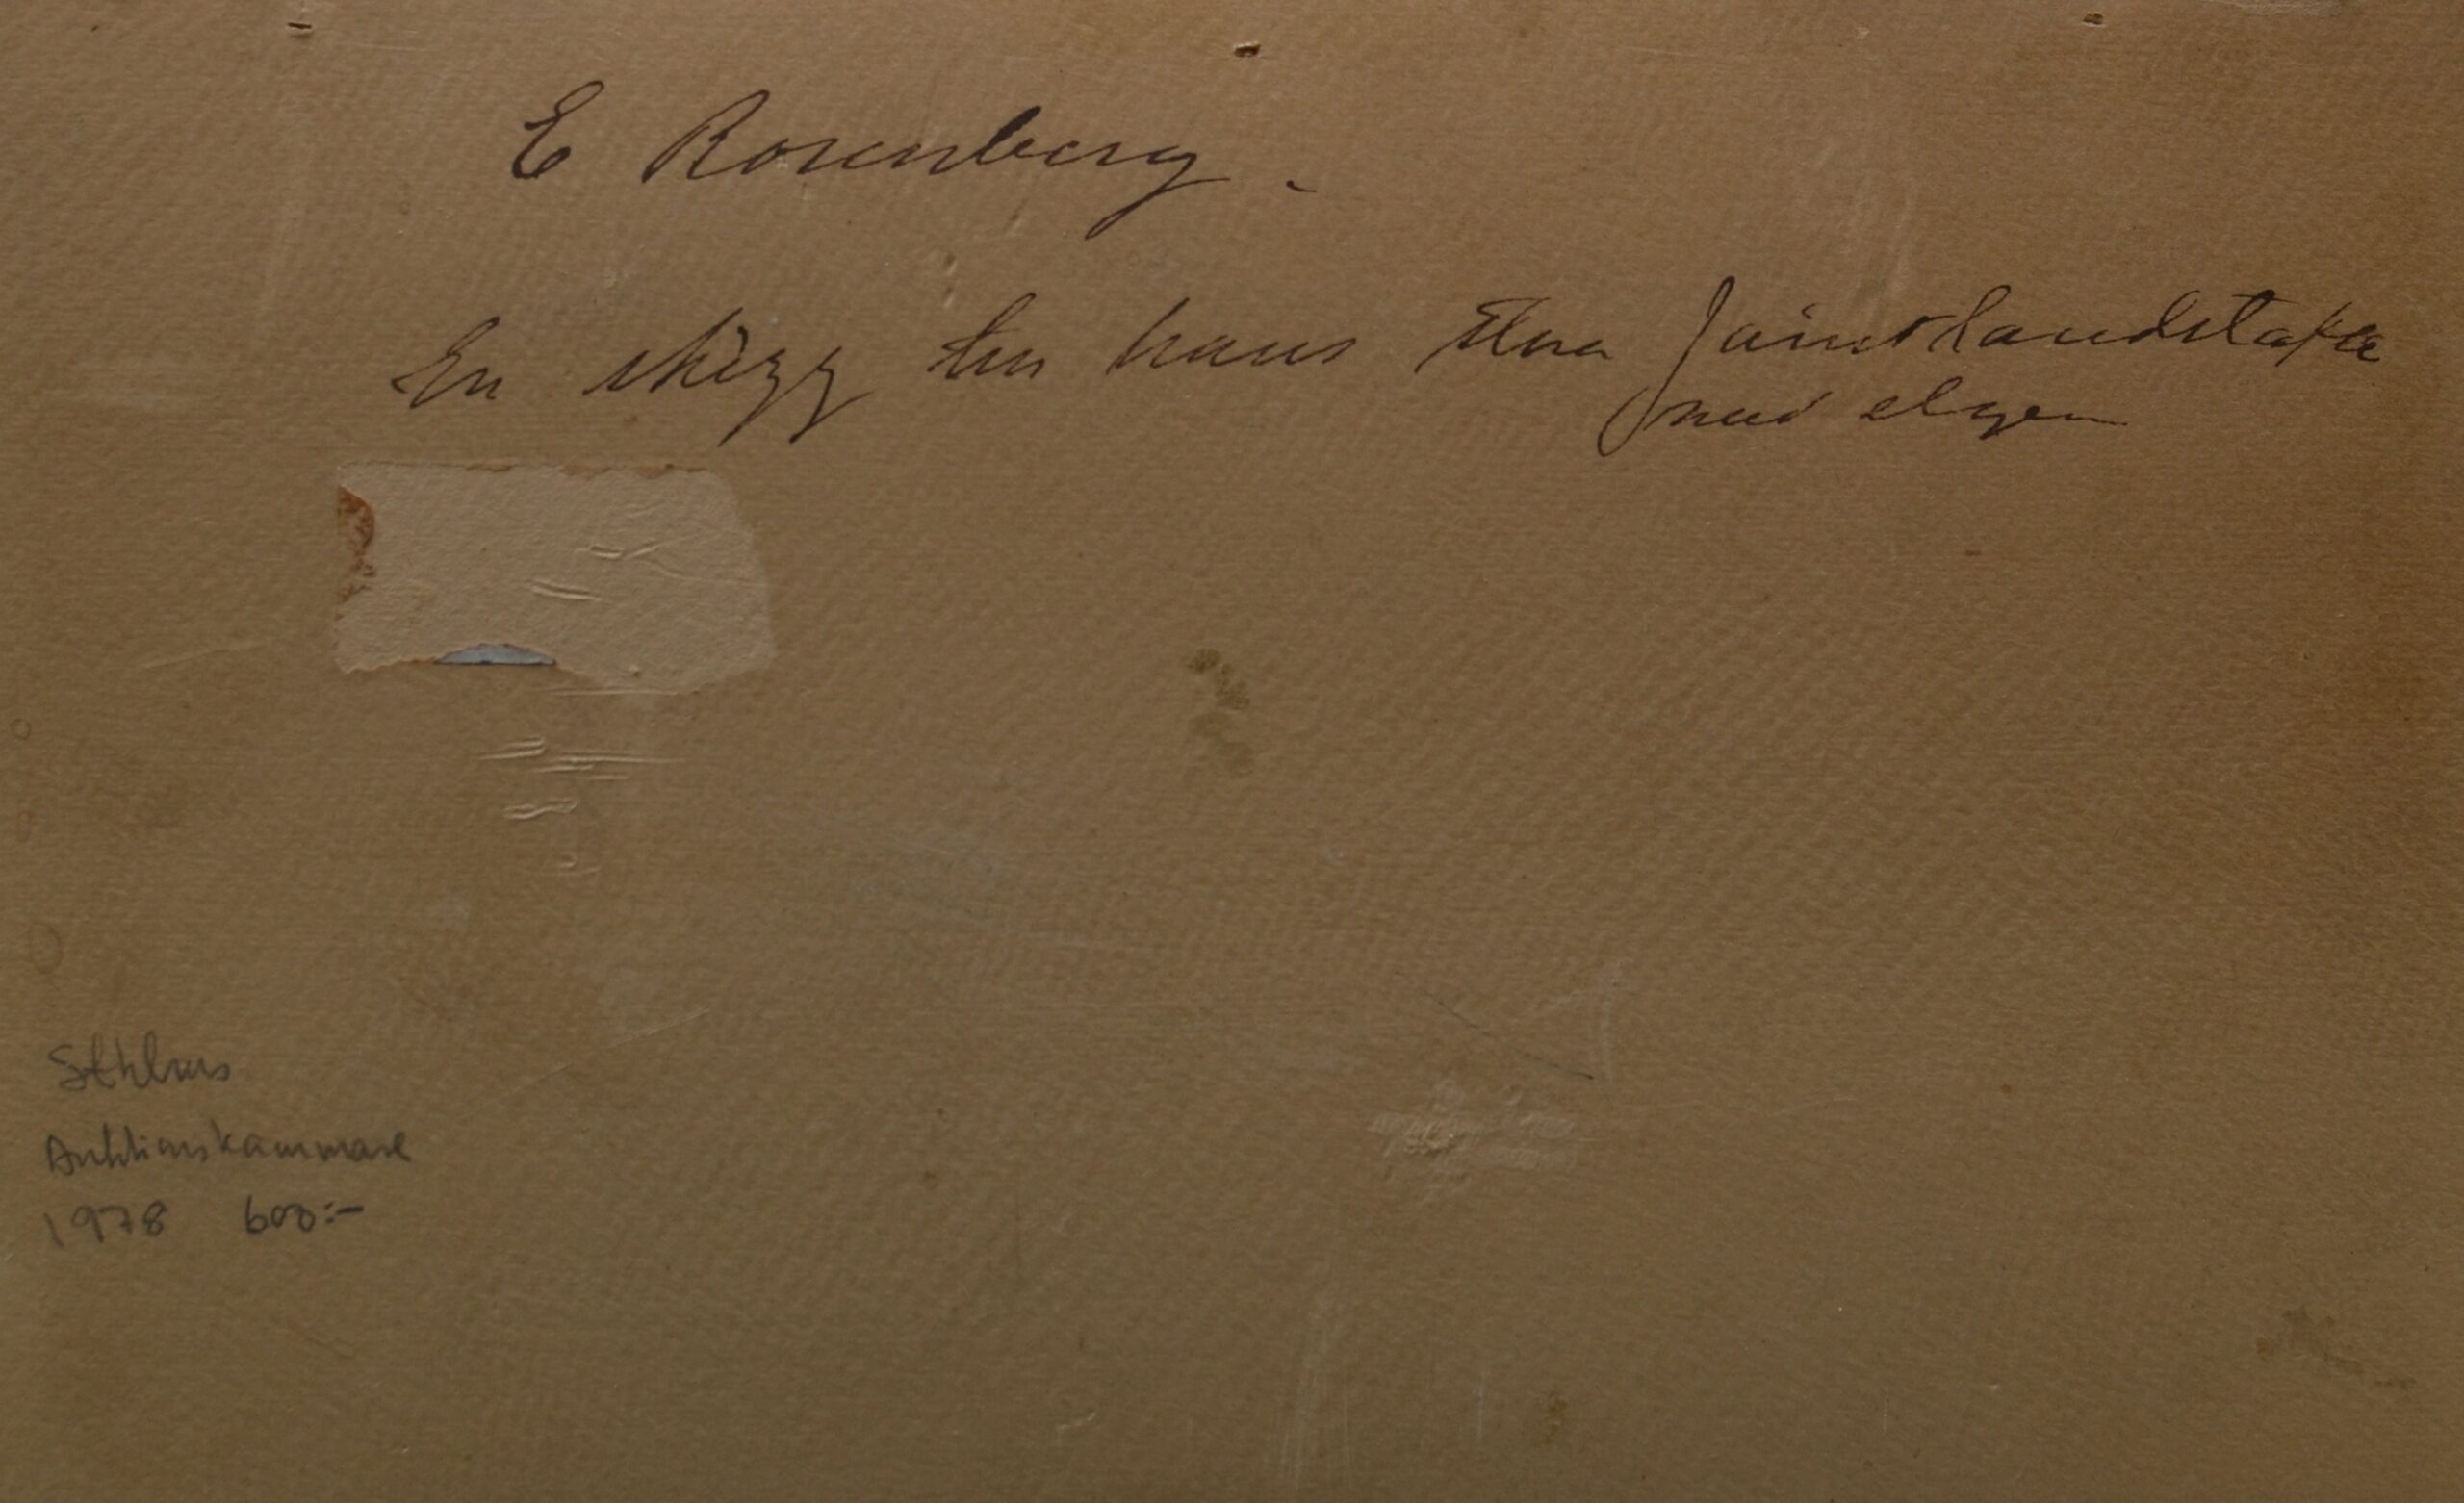 E Rosenberg.
En skizz ten hans stora Jämtlandstafla
med elgen
Sthlms
Auktionskammare
1978 600:-